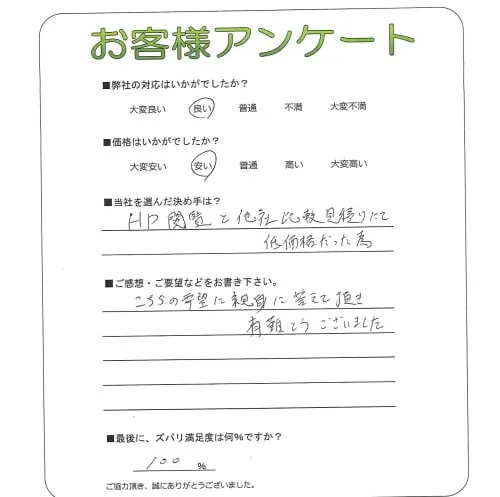 お客様アンケート
■弊社の対応はいかがでしたか？
大変良い 良い 普通 不満 大変不満
■価格はいかがでしたか？
大変安い 安い 普通 高い 大変高い
■当社を選んだ決め手は？
HP閲覧と他社比較見積りにて
低価格だった為
■ご感想・ご要望などをお書き下さい。
こちらの希望に親身に答えて頂き
有難とうございました
■最後に、ズバリ満足度は何％ですか？
100 ％
ご協力頂き、誠にありがとうございました。